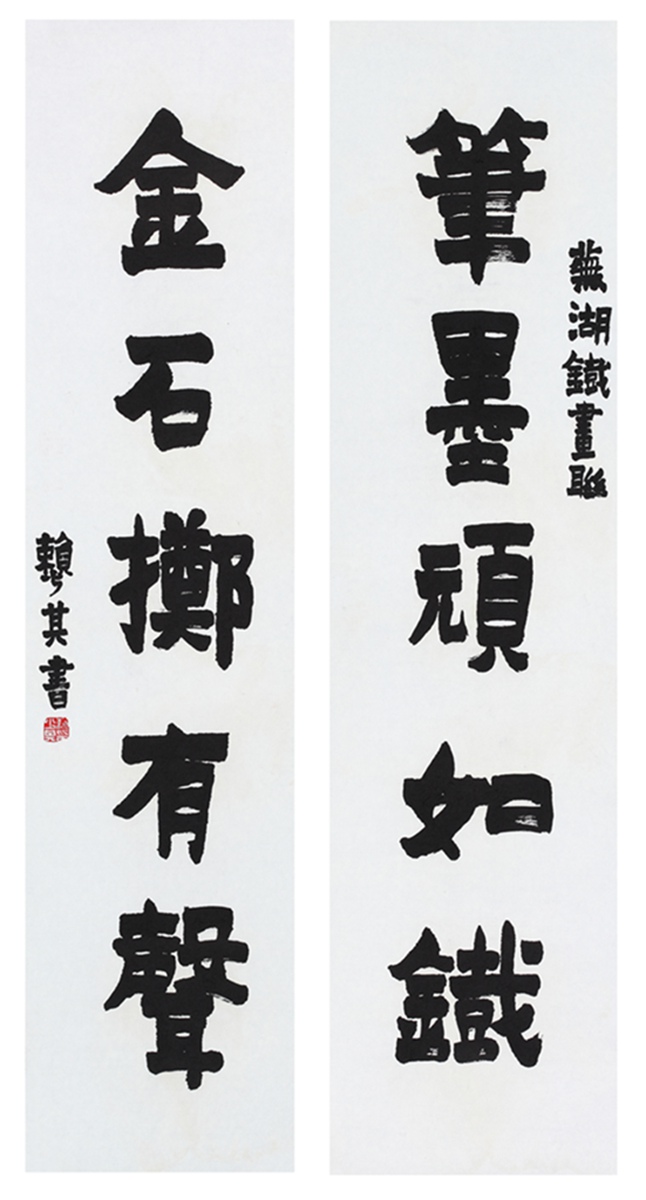 蕪湖鐵畫聯
筆墨頑如鐵
金石擲有聲
賴少其書